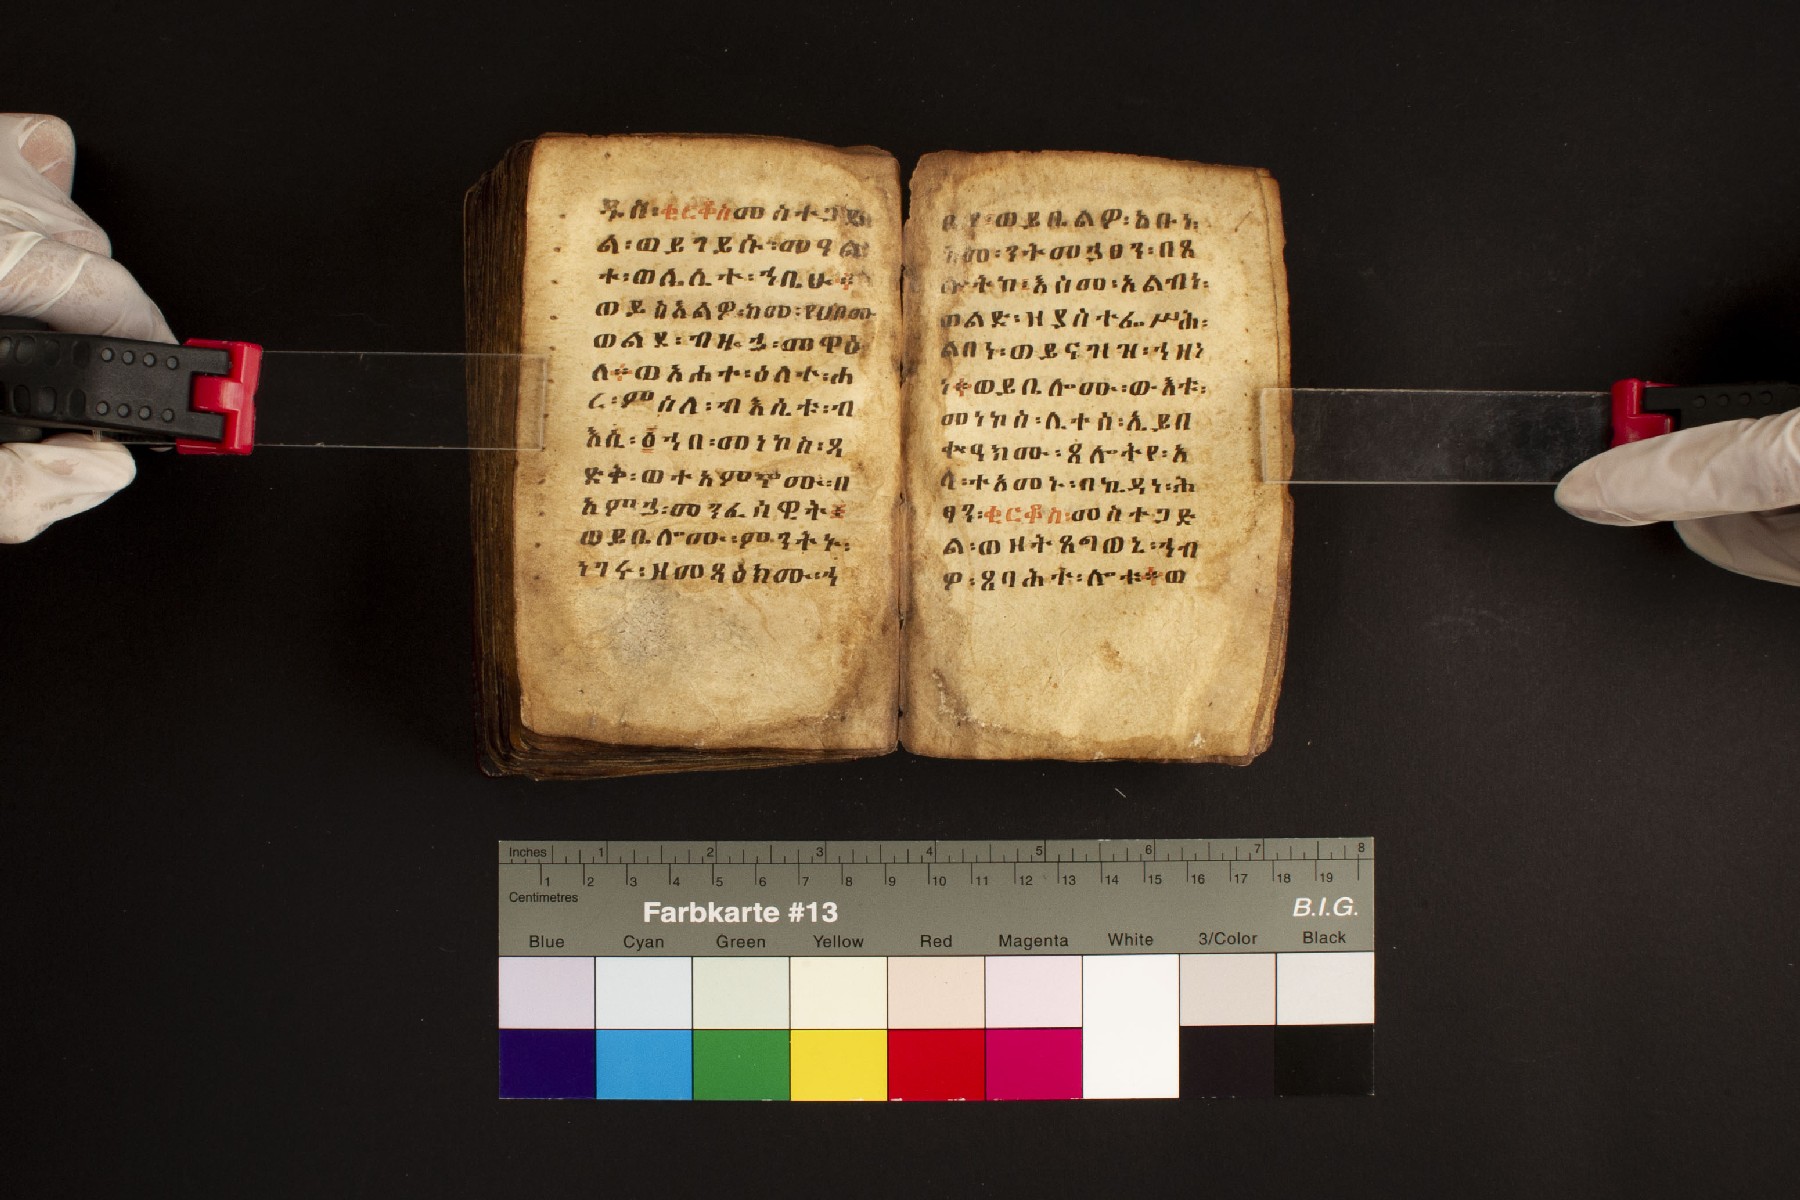 ዱስ፡ቂርቆስ መስተጋድ
ል፡ወይገይሱ፡መዓል
ተ፡ወሌሊተ፡ኀቤሁ።
ወይስእልዎ፡ከመ፡የሀቦሙ
ወልደ፡ብዙኃ፡መዋዕ
ለ።ወአሐተ፡ዕለተ፡ሐ
ረ፡ምስለ፡ብእሲቱ፡ብ
እሲ፡፩ኀበ፡መነኮስ፡ጻ
ድቅ፡ወተአምኅሙ፡በ
አምኃ፡መንፈሳዊት፤
ወይቤሎሙ፡ምንትኑ፡
ነገሩ፡ዘመጻዕክሙ፡ኀ
ቤየ፡ወይቤልዎ፡አቡነ፡
ከመ፡ንትመኃፀን፡በጸ
ሎትከ፡እስመ፡አልብነ፡
ወልድ፡ዘያስተፌሥሕ፡
ልበነ፡ወይናዝዝ፡ኀዘነ
ነ።ወይቤሎሙ፡ውእቱ፡
መነኮስ፡ሊተሰ፡ኢይበ
ቍዓክሙ፡ጸሎትየ፡አ
ላ፡ተአመኑ፡በኪዳነ፡ሕ
ፃን፡ቂርቆስ፡መስተጋድ
ል፡ወዘትጸግወኒ፡ኀብ
ዎ፡ጸባሕተ፡ሎቱ።ወ
Inches 1 2 3 4 5 6 7 8
1 2 3 4 5 6 7 8 9 10 11 12 13 14 15 16 17 18 19
Centimetres
Farbkarte #13 B.I.G.
Blue Cyan Green Yellow Red Magenta White 3/Color Black